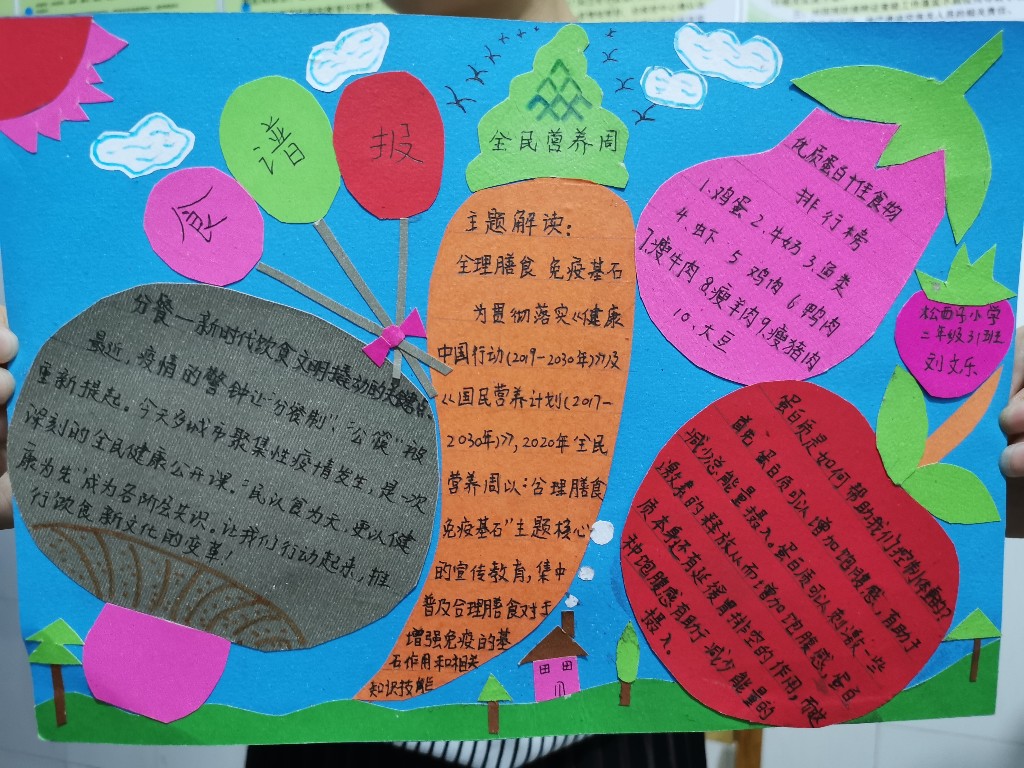 食
谱
报
全民营养周
主题解读：
全理膳食 免疫基石
为贯彻落实《健康
中国行动(2019-2030年)》及
《国民营养计划(2017-
2030年)》,2020年全民
营养周以:"合理膳食
免疫基石"主题核心
的宣传教育,集中
普及合理膳食对于
增强免疫的基
石作用和相关
知识技能
分餐—新时代饮食文明撬动的关键点
最近，疫情的警钟让"分餐制"、"公筷"被
重新提起。今天多城市聚集性疫情发生，是一次
深刻的全民健康公开课。"民以食为天，更以健
康为先"成为各阶层共识。让我们行动起来，推
行饮食新文化的变革！
优质蛋白十佳食物
排行榜
1.鸡蛋 2.牛奶 3.鱼类
4.虾 5 鸡肉 6 鸭肉
7.瘦牛肉 8.瘦羊肉 9.瘦猪肉
10.大豆
二年级31班
刘文乐
蛋白质是如何帮助我们控制体重的?
首先，蛋白质可以增加饱腹感，有助于
减少总能量摄入。蛋白质可以刺激一些
激素的释放从而增加饱腹感，蛋白
质本身还有延缓胃排空的作用，而这
种饱腹感有助于减少能量的
摄入。